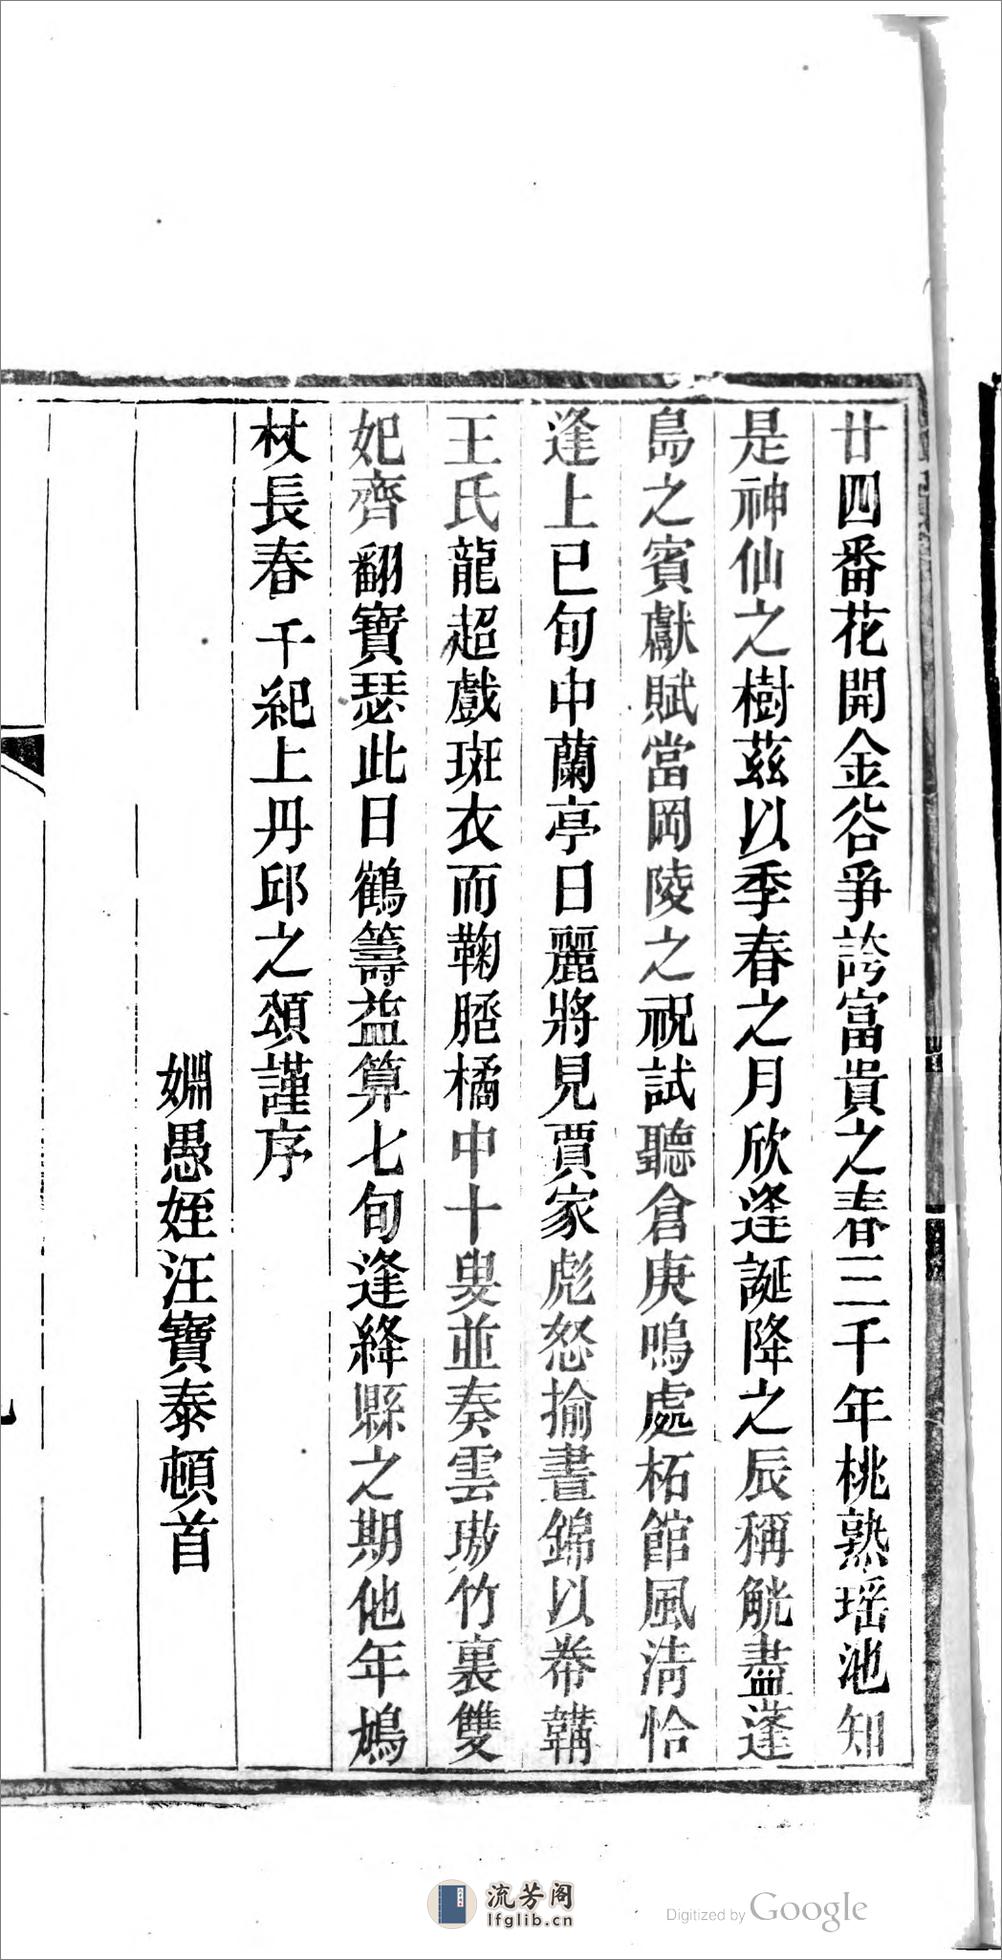 廿四番花開金谷爭誇富貴之春三千年桃熟瑶池知
是神仙之樹茲以季春之月欣逢誕降之辰稱觥盡蓬
島之賓獻賦當岡陵之祝試聽倉庚鳴處柘館風淸恰
逢上巳旬中蘭亭日麗將見賈家彪怒揄晝錦以帣鞲
王氏龍超戲斑衣而鞠脃橘中十叟並奏雲璈竹裏雙
妃齊翻寶瑟此日鶴籌益算七旬逢絳縣之期他年鳩
杖長春千紀上丹邱之頌謹序
婣愚姪汪寶泰頓首
流芳阁
lfglib.cn
Digitized by Google